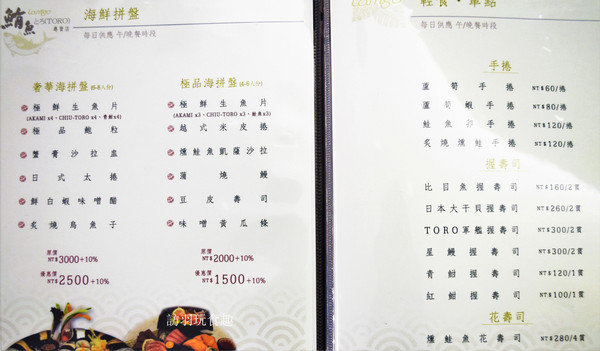 鮪魚
とろ(TORO)
專賣店
海鮮拼盤
每日供應 午/晚餐時段
奢華海拼盤(6-8人分)
極鮮生魚片
(AKAMI x4、CHIU-TORO x4、青魽x4)
極品鮑粒
蟹膏沙拉盅
日式太捲
鮮白蝦味噌醋
炙燒烏魚子
原價
NT$3000+10%
優惠價
NT$2500+10%
極品海拼盤(4-6人分)
極鮮生魚片
(AKAMI x3、CHIU-TORO x3、鮭魚x3)
越式米皮捲
燻鮭魚凱薩沙拉
蒲燒鰻
豆皮壽司
味噌黃瓜條
原價
NT$2000+10%
優惠價
NT$1500+10%
訪羽玩食趣
輕食・單點
每日供應 午/晚餐時段
手捲
蘆筍手捲 NT$60/捲
蘆筍蝦手捲 NT$80/捲
鮭魚卵手捲 NT$120/捲
炙燒燻鮭手捲 NT$120/捲
握壽司
比目魚握壽司 NT$160/2貫
日本大干貝握壽司 NT$260/2貫
TORO軍艦握壽司 NT$300/2貫
星鰻握壽司 NT$300/2貫
青魽握壽司 NT$120/1貫
紅魽握壽司 NT$100/1貫
花壽司
燻鮭魚花壽司 NT$280/4貫